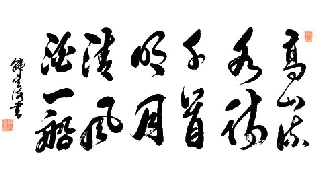 高山流
水詩
千首
明月
清風
酒一船